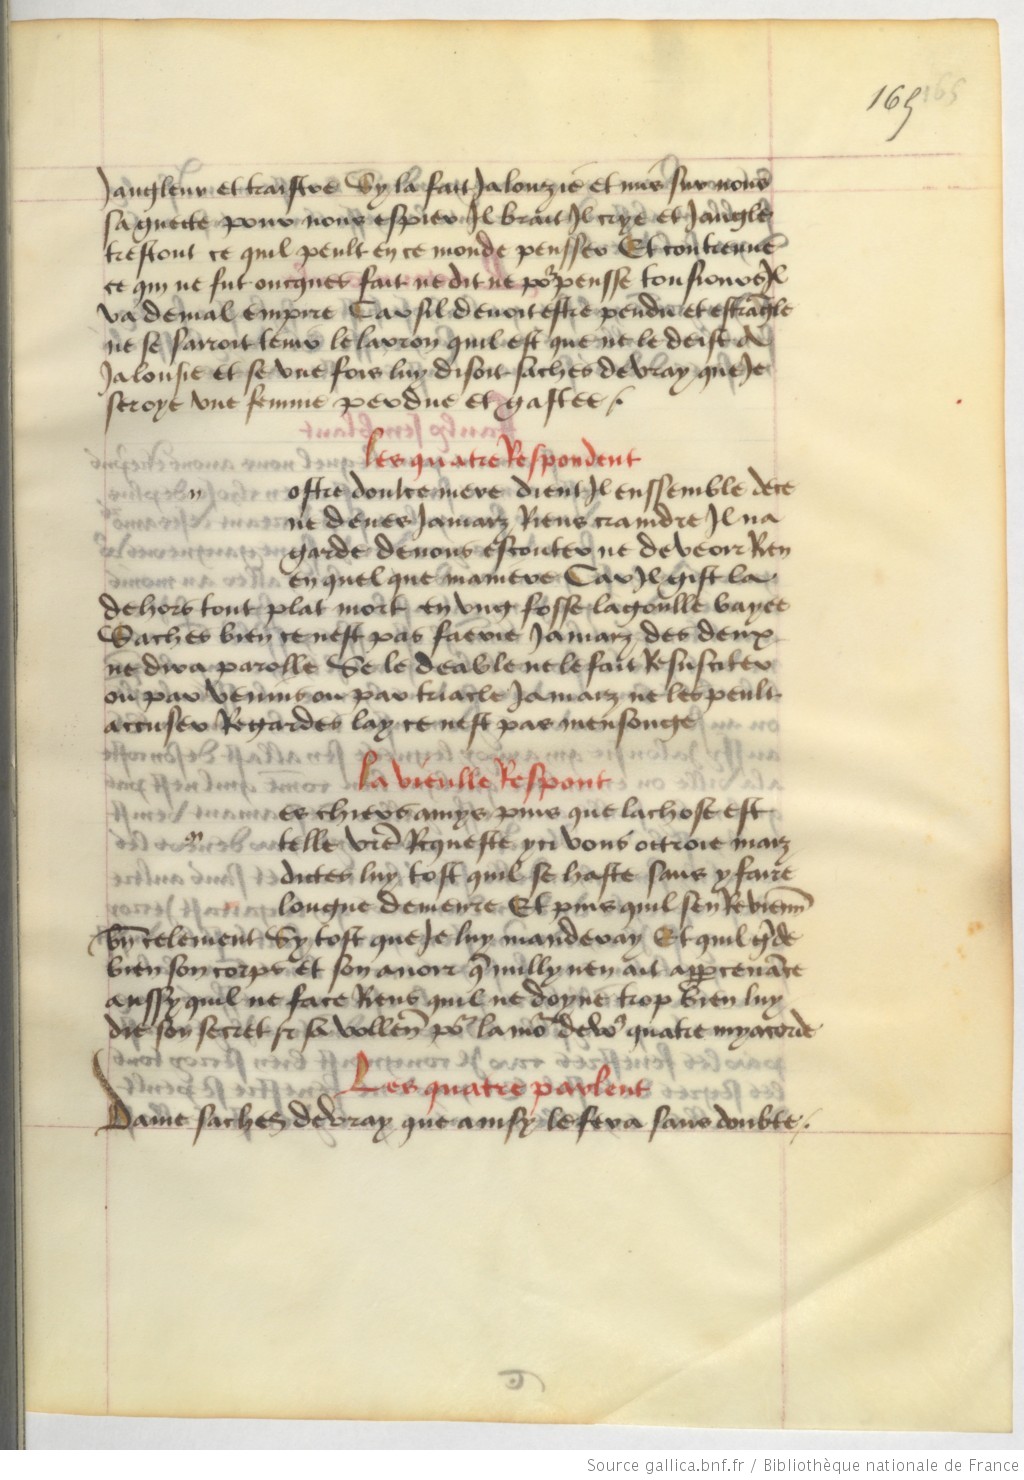 165
Jangleur et traistre Sy la fait Jalouzie et mis sur nous
sa guecte pour nous espier Il brait Il crye et Jangle
trestout ce quil peult en ce monde pensser Et contreuve
ce qui ne fut oncques fait ne dit ne po pensse tousiours Il
va de mal empire Car sil devoit estre pendu et estrangle
ne se sarroit tenir le larron quil est que ne le deist a
Jalousie et se une fois luy disoit saches de vray que Je
seroye une femme perdue et gastee
Les quatre Respondent
n ostre doulce mere dient Il enssemble de ce
ne deves Jamaiz Riens craindre Il na
garde de nous escouter ne de veoir Ren
en quelque maniere Car Il gist la
dehors tout plat mort en ung fosse la goulle bayee
Saches bien ce nest pas faerie Jamaiz des deux
ne dira parolle Se le deable ne le fait Resusciter
ou par venins ou par triacle Jamaiz ne les peult
accuser Regardes lay ce nest pas mensonge
La vieulle Respont
m es chiers amys puis que la chose est
telle vre Requeste yci vous ottroie maiz
dictes luy tost quil se haste sans y faire
longue demeure Et puis quil sen Revienn
celement Sy tost que Je luy manderay Et quil gde
bien son corps et son avoir q nully nen ait appcevāce
aussy quil ne face Riens quil ne doyne trop bien luy
die son secret quatre my acorde
Les quatre parlent
Dame saches de vray que ainsy le fera sans doubte
Source gallica.bnf.fr / Bibliothèque nationale de France